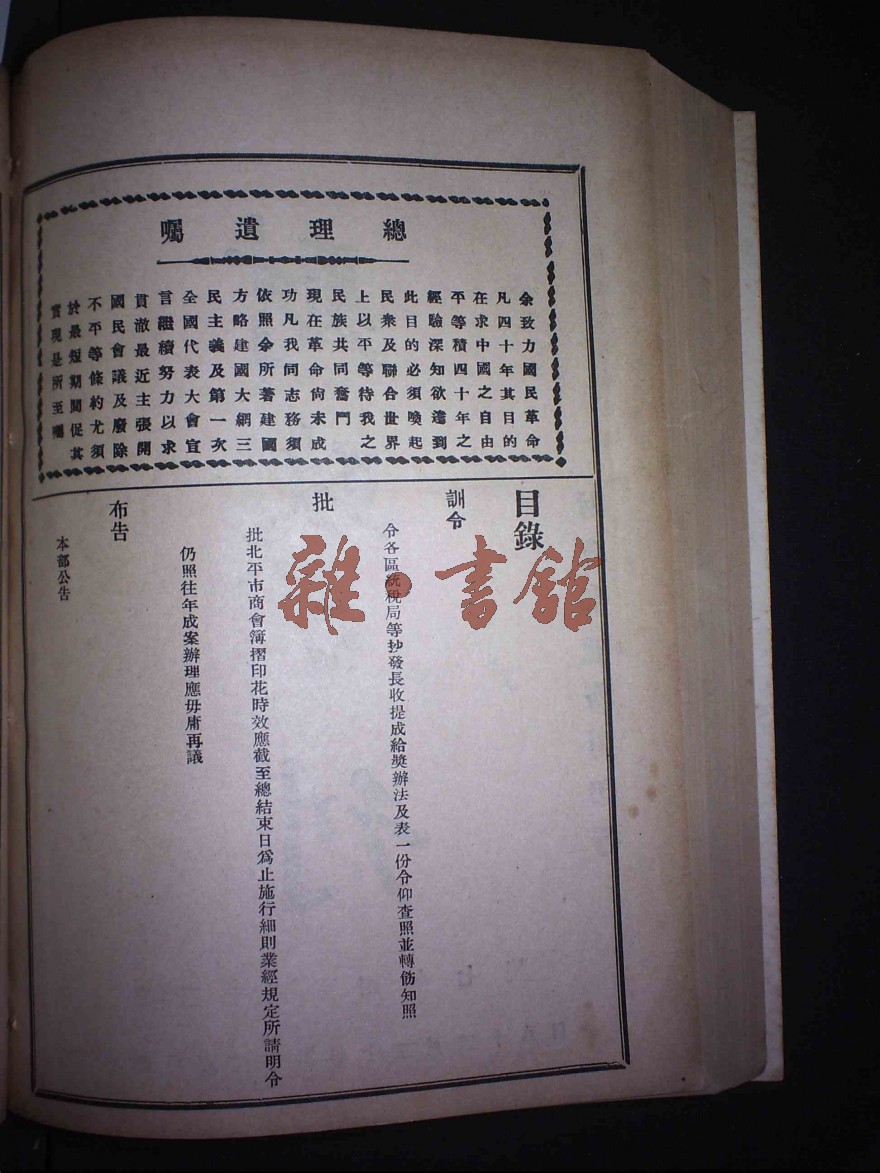 總理遺囑
余致力國民革命
凡四十年其目的
在求中國之自由
平等積四十年之
經驗深知欲達到
此目的必須喚起
民衆及聯合世界
上以平等待我之
民族共同奮鬥
現在革命尙未成
功凡我同志務須
依照余所著建國
方略建國大綱三
民主義及第一次
全國代表大會宣
言繼續努力以求
貫澈最近主張開
國民會議及廢除
不平等條約尤須
於最短期間促其
實現是所至囑
目錄
訓令
令各區統稅局等抄發長收提成給獎辦法及表一份令仰查照並轉飭知照
批
批北平市商會簿摺印花時效應截至總結束日爲止施行細則業經規定所請明令
仍照往年成案辦理應毋庸再議
布告
本部公告
雜·書館